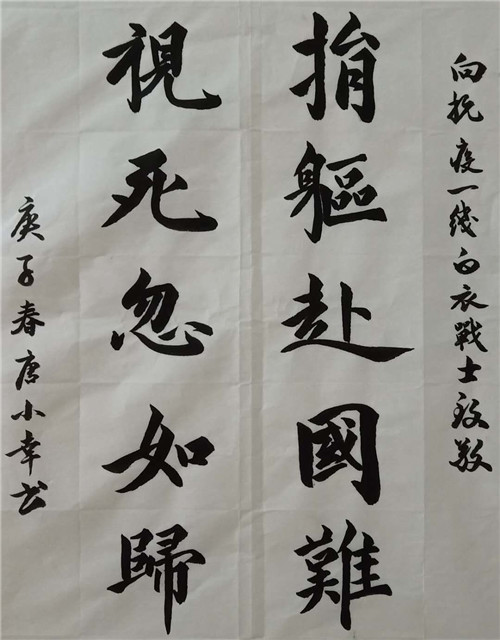 向抗疫一线白衣戰士致敬
捐軀赴國難
視死忽如歸
庚子春唐小幸书